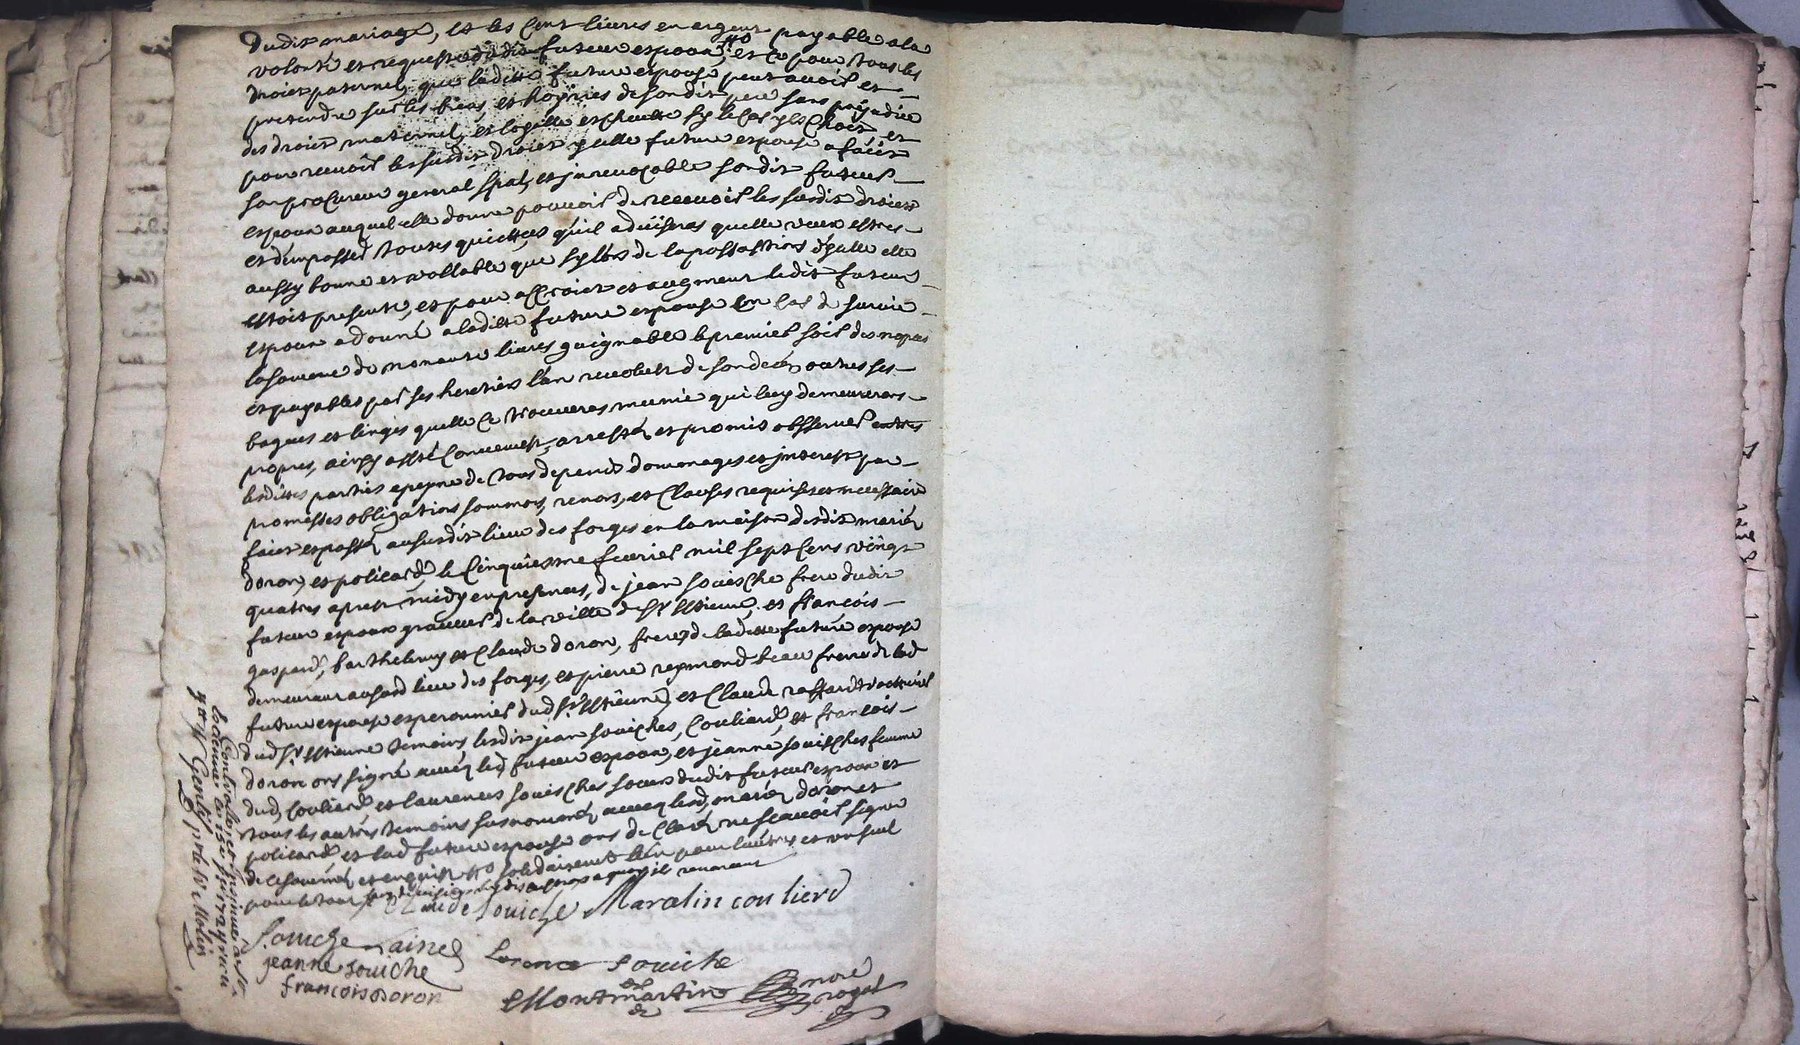 dudit mariage, et les cent livres en argent payable a la
volonté et requeste dudit futeur espoux, et ce pour tous les
droict paternel, que laditte future espouse peut avoir et
pretendre sur les biens et hoyries de sondit pere sans prejudice
des droict maternel, et cogelle escheutte sy le cas y eschoit, et
pour recevoir les susdit droict ycelle future espouse a faict
son procureur general spal, et jrrevocable sondit futeur
espoux auquel elle donne pouvoir de recevoir les susdit droicts
et d'en passer toutes quictences qu'il adviseras quelle veux estres
aussy bonne et vallable que sy lors de la passassions d'ycelle elle
estoit presente, et pour accroict et augment ledit futeur
espoux a donné a laditte future espouse en cas de survie
la somme de nonante livres gaignable le premier soir des nopces
et payables par ses heretiers l'an revoleu de son decéz outres ses
bagues et linges quelle ce trouveras munie qui luy demeureront
propres, ainsy a esté convenut, arrestéz et promis observer entres
lesdittes parties a peyne de tous depend domages et jnterest par
promesses obligations sommons, renons, et clauses requises et necessaire
faict et passéz au susdit lieu des forges en la maison desdit mariéz
doron, et policard, le cinquiesme fevrier mil sept cens vingt
quatres apres midy en presences, de jean souische frere dudit
futeur espoux graveur de la ville de St Estienne, et francois
gaspard, barthelemy et Claude doron, freres de laditte future espouse
demeurant ausd lieu des forges, et pierre reymond beau frere de lad
future espouse esperonnier dud St Estienne, et Claude raffard
dud St Estienne temoins lesdit jean souisches, Couliard, et francois
doron ont signé avecq led futeur espoux, et jeanne souisches femme
dud Couliard, et laurence souisches soeurs dudit futeur espoux et
tous les autres temoins susnommés avecq lesd mariéz doron et
policard et lad future espouse ont declaréz ne scavoir signer
de ce sommés et enquis solidairement l'un pour l'autres et un seul
pour le tout sans division
Claude souiche Maralin coulierd
Souiche ainé
jeanne souiche Lorence souiche
francois doron
EMontmartin
nore
rogal
Controllé, et